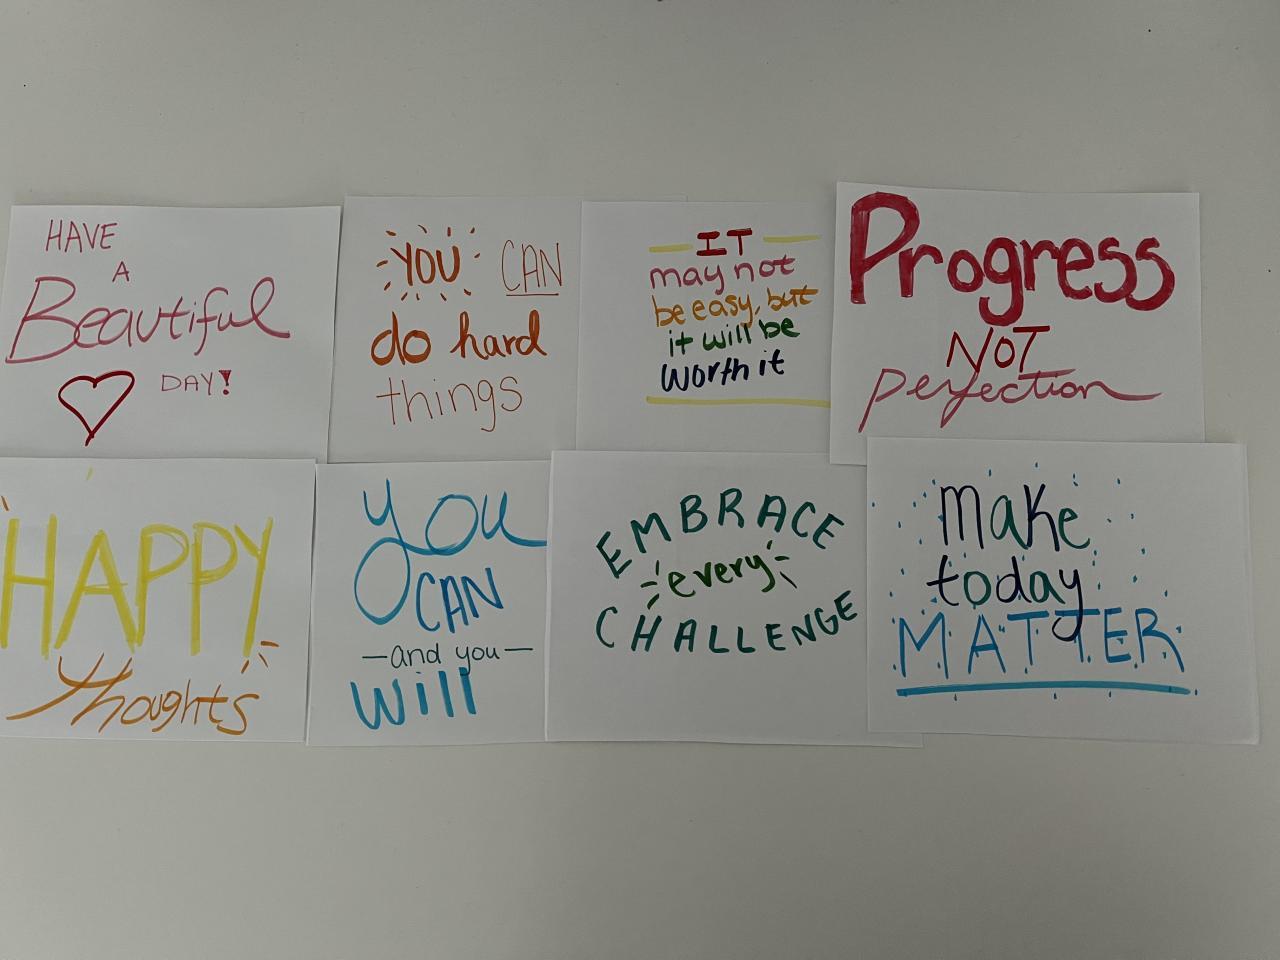 HAVE
A
Beautiful
DAY!
YOU CAN
do hard
things
IT
may not
be easy, but
it will be
worth it
Progress
NOT
perfection
HAPPY
Thoughts
You
CAN
and you
will
EMBRACE
every
CHALLENGE
Make
today
MATTER